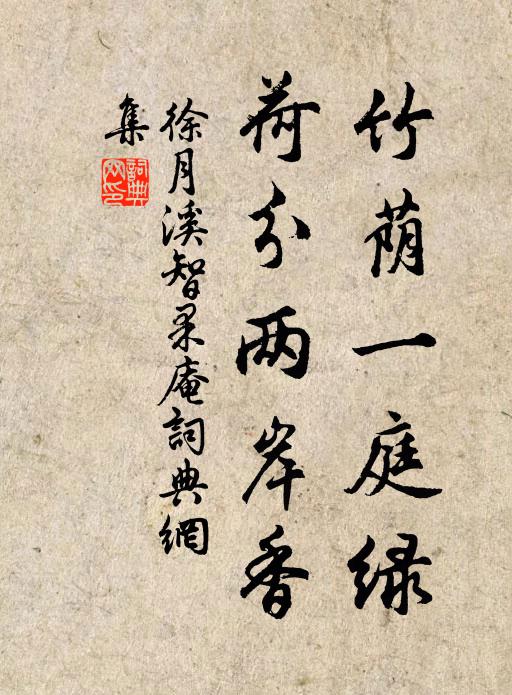 竹荫一庭绿
荷分两岸香
徐月溪智果庵詞典網
集
詞典網印